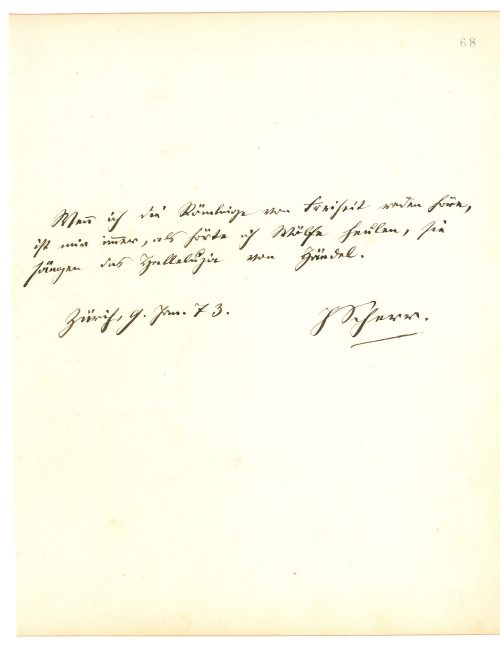 68
Wenn ich die Römlinge von Freiheit reden höre,
ist mir immer, als hörte ich Wölfe heulen, sie
sängen das Halleluja von Händel.
Zürich, 9. Jan. 73.
J Scherr.